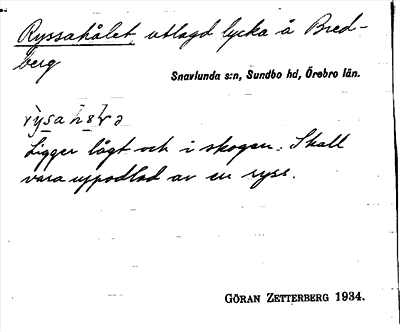 Ryssahålet, utlagd lycka å Bred-
berg
Snavlunda s:n, Sundbo hd, Örebro län.
Ligger lågt och i skogen. Skall
vara uppodlad av en ryss.
GÖRAN ZETTERBERG 1934.